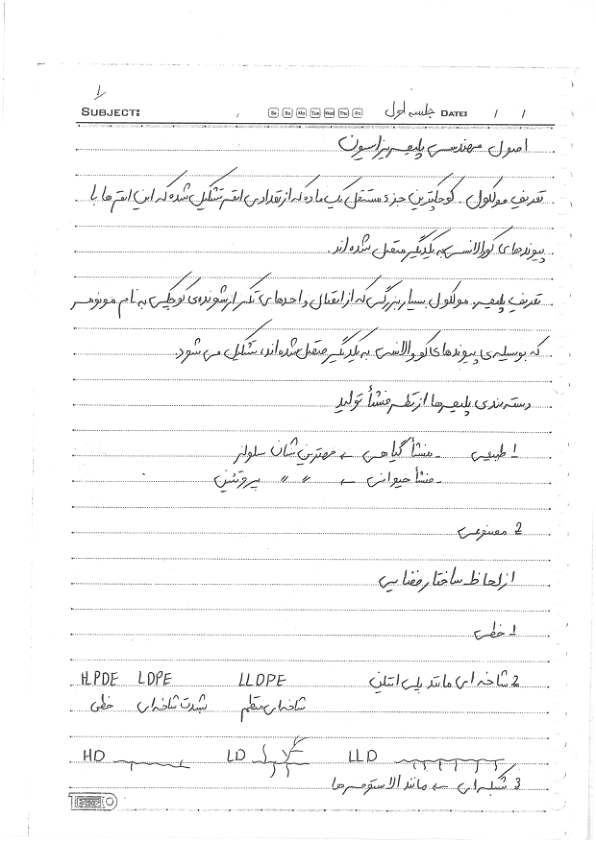 1
SUBJECT: Sa Su Mo Tue Wed Thu Fri جلسه اول DATE: / /
اصول مهندسی پلیمریزاسیون
تعریف مولکول . کوچکترین جزء مستقل یک ماده که از تعدادی اتم تشکیل شده که این اتم ها با
پیوندهای کووالانسی به یکدیگر متصل شده اند.
تعریف پلیمر. مولکول بسیار بزرگی که از اتصال واحدهای تکرار شونده‌ی کوچکی به نام مونومر
که بوسیله‌ی پیوندهای کووالانسی به یکدیگر متصل شده‌اند، تشکیل می شود.
دسته بندی پلیمرها از نظر منشأ تولید
1 طبیعی - منشأ گیاهی ← مهمترین شان سلولز
- منشأ حیوانی ← 〃 〃 پروتئین
2 مصنوعی
از لحاظ ساختار فضایی
1 خطی
2 شاخه ای مانند پلی اتلین LLDPE LDPE HLPDE
شاخه‌ای منظم بشدت شاخه‌ای خطی
HD LD LLD
3 شبکه‌ای ← مانند الاستومرها